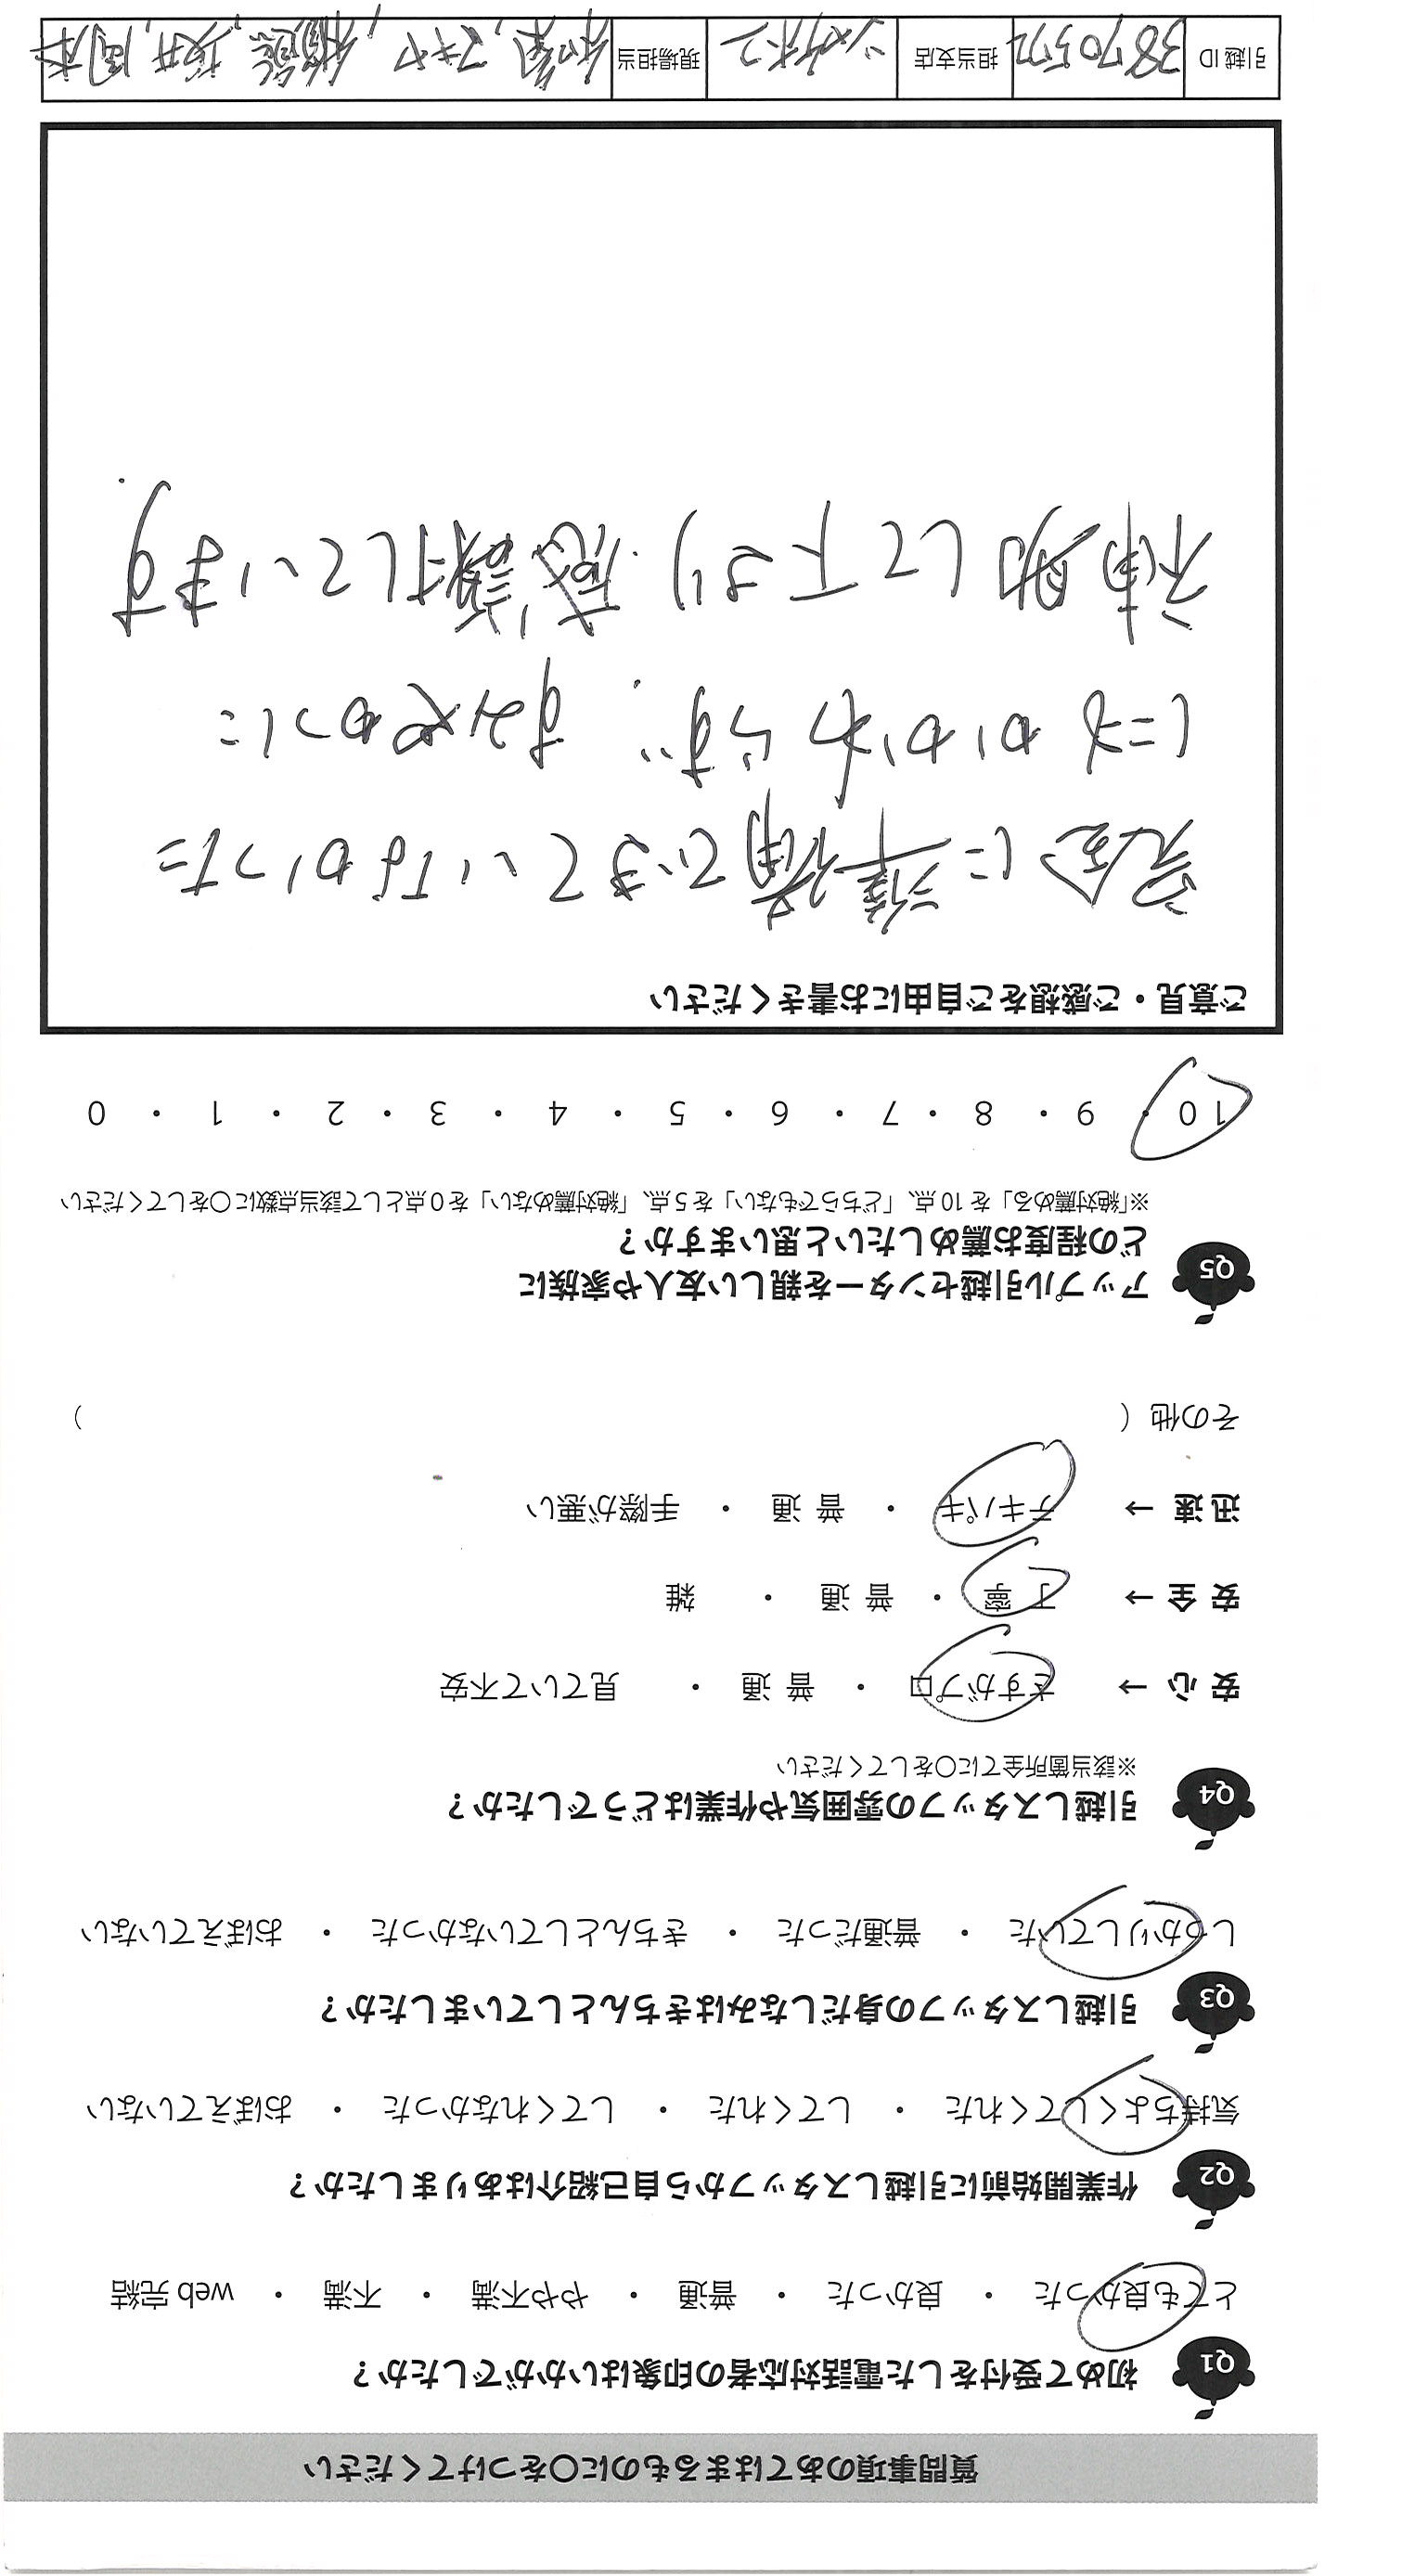 質問事項のあてはまるものに○をつけてください
Q1 初めて受付をした電話対応者の印象はいかがでしたか？
とても良かった ・ 良かった ・ 普通 ・ やや不満 ・ 不満 ・ web 完結
Q2 作業開始前に引越しスタッフから自己紹介はありましたか？
気持ちよくしてくれた ・ してくれた ・ してくれなかった ・ おぼえていない
Q3 引越しスタッフの身だしなみはきちんとしていましたか？
しっかりしていた ・ 普通だった ・ きちんとしていなかった ・ おぼえていない
Q4 引越しスタッフの雰囲気や作業はどうでしたか？
※該当箇所全てに○をしてください
安 心 → さすがプロ ・ 普 通 ・ 見ていて不安
安 全 → 丁 寧 ・ 普 通 ・ 雑
迅 速 → テキパキ ・ 普 通 ・ 手際が悪い
その他（ ）
Q5 アップル引越センターを親しい友人や家族に
どの程度お薦めしたいと思いますか？
※「絶対薦める」を 10 点、「どちらでもない」を 5 点、「絶対薦めない」を 0 点として該当点数に○をしてください
10 ・ 9 ・ 8 ・ 7 ・ 6 ・ 5 ・ 4 ・ 3 ・ 2 ・ 1 ・ 0
ご意見・ご感想をご自由にお書きください
完全に準備できていなかった
にもかかわらず、すみやかに
補助して下さり、感謝しています。
引越 ID 3870572 担当支店 現場担当 マキヤ, 坂井, 岡本